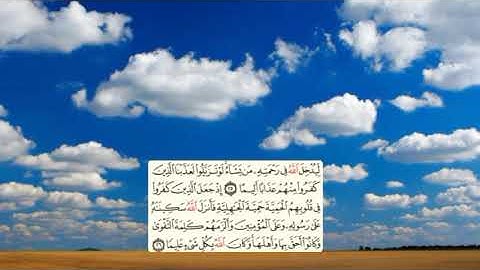 لِّيُدْخِلَ اللَّهُ فِي رَحْمَتِهِ مَن يَشَاءُ لَوْ تَزَيَّلُوا لَعَذَّبْنَا الَّذِينَ
كَفَرُوا مِنْهُمْ عَذَابًا أَلِيمًا ٢٥ إِذْ جَعَلَ الَّذِينَ كَفَرُوا
فِي قُلُوبِهِمُ الْحَمِيَّةَ حَمِيَّةَ الْجَاهِلِيَّةِ فَأَنزَلَ اللَّهُ سَكِينَتَهُ
عَلَىٰ رَسُولِهِ وَعَلَى الْمُؤْمِنِينَ وَأَلْزَمَهُمْ كَلِمَةَ التَّقْوَىٰ
وَكَانُوا أَحَقَّ بِهَا وَأَهْلَهَا وَكَانَ اللَّهُ بِكُلِّ شَيْءٍ عَلِيمًا ٢٦